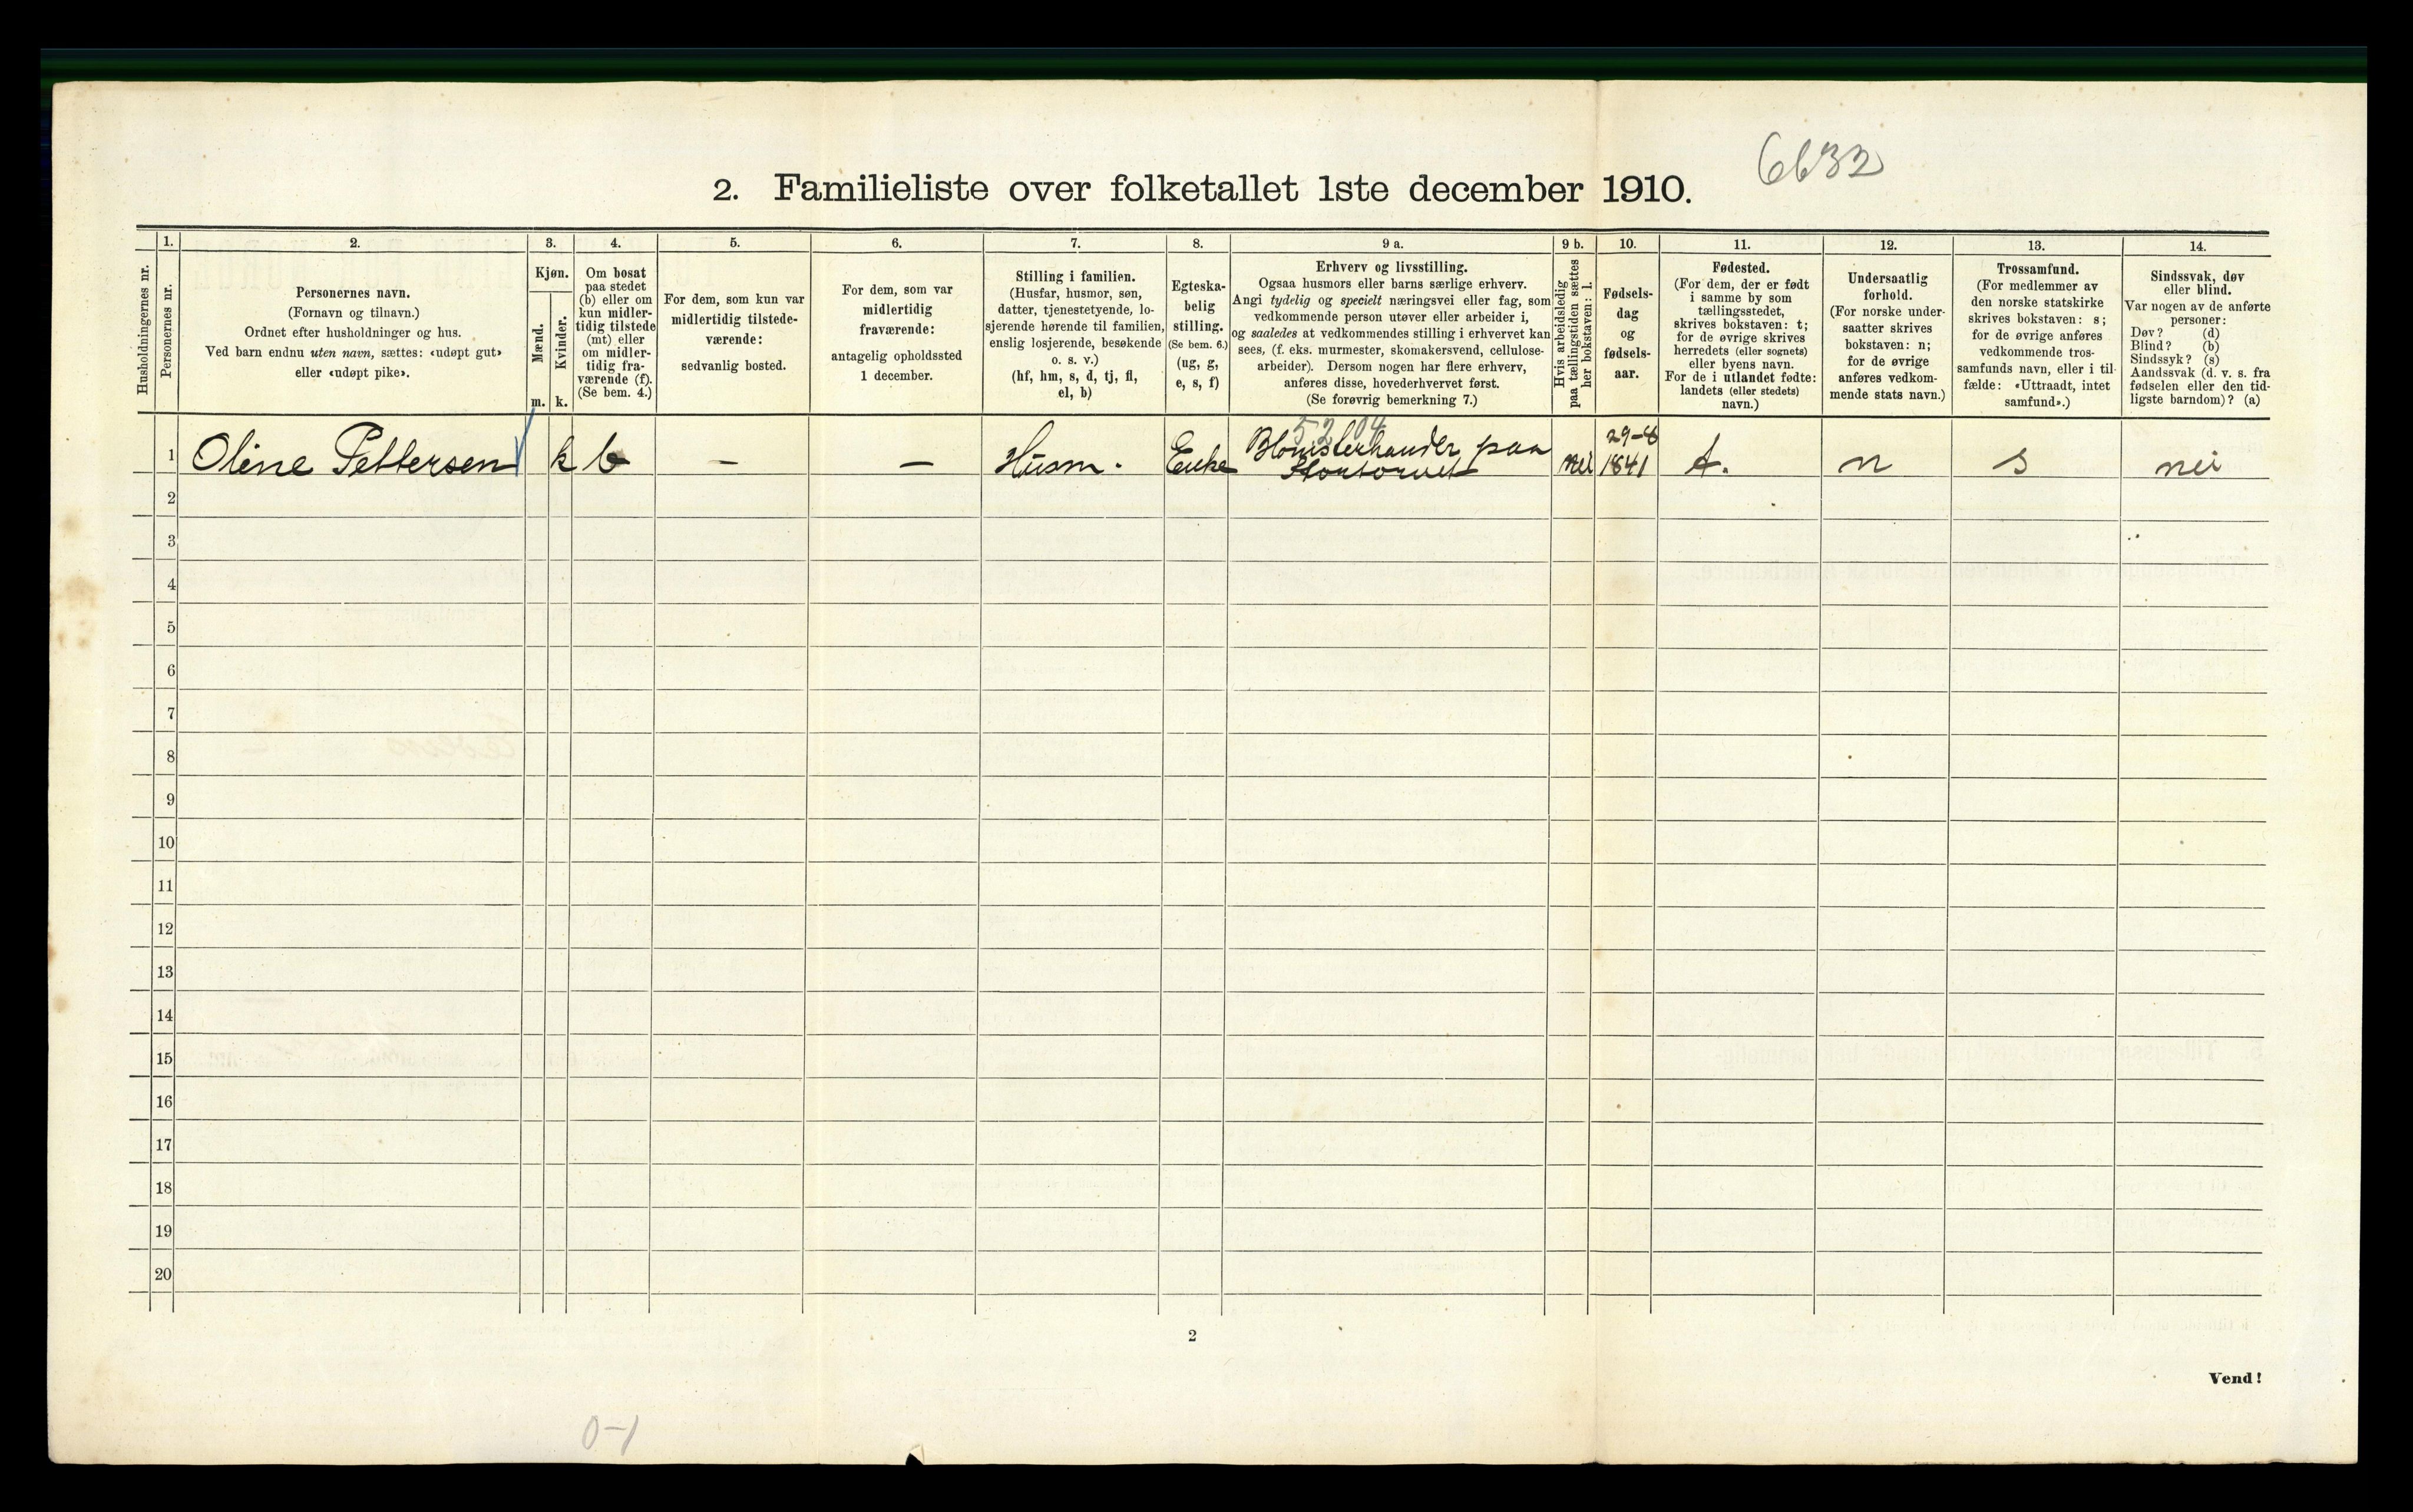 6632
2. Familieliste over folketallet 1ste december 1910.
Husholdningernes nr.
1.
Personernes nr.
2.
Personernes navn.
(Fornavn og tilnavn.)
Ordnet efter husholdninger og hus.
Ved barn endnu uten navn, sættes: «udøpt gut»
eller «udøpt pike».
3.
Kjøn.
Mænd.
Kvinder.
m. k.
4.
Om bosat
paa stedet
(b) eller om
kun midler-
tidig tilstede
(mt) eller
om midler-
tidig fra-
værende (f).
(Se bem. 4.)
5.
For dem, som kun var
midlertidig tilstede-
værende:
sedvanlig bosted.
6.
For dem, som var
midlertidig
fraværende:
antagelig opholdssted
1 december.
7.
Stilling i familien.
(Husfar, husmor, søn,
datter, tjenestetyende, lo-
sjerende hørende til familien,
enslig losjerende, besøkende
o. s. v.)
(hf, hm, s, d, tj, fl,
el, b)
8.
Egteska-
belig
stilling.
(Se bem. 6.)
(ug, g,
e, s, f)
9 a.
Erhverv og livsstilling.
Ogsaa husmors eller barns særlige erhverv.
Angi tydelig og specielt næringsvei eller fag, som
vedkommende person utøver eller arbeider i,
og saaledes at vedkommendes stilling i erhvervet kan
sees, (f. eks. murmester, skomakersvend, cellulose-
arbeider). Dersom nogen har flere erhverv,
anføres disse, hovederhvervet først.
(Se forøvrig bemerkning 7.)
9 b.
Hvis arbeidsledig
paa tællingstiden sættes
her bokstaven: l.
10.
Fødsels-
dag
og
fødsels-
aar.
11.
Fødested.
(For dem, der er født
i samme by som
tællingsstedet,
skrives bokstaven: t;
for de øvrige skrives
herredets (eller sognets)
eller byens navn.
For de i utlandet fødte:
landets (eller stedets)
navn.)
12.
Undersaatlig
forhold.
(For norske under-
saatter skrives
bokstaven: n;
for de øvrige
anføres vedkom-
mende stats navn.)
13.
Trossamfund.
(For medlemmer av
den norske statskirke
skrives bokstaven: s;
for de øvrige anføres
vedkommende tros-
samfunds navn, eller i til-
fælde: «Uttraadt, intet
samfund».)
14.
Sindssvak, døv
eller blind.
Var nogen av de anførte
personer:
Døv? (d)
Blind? (b)
Sindssyk? (s)
Aandssvak (d. v. s. fra
fødselen eller den tid-
ligste barndom)? (a)
52 04
1 Oline Pettersen k b – – Husm. Enke Blomsterhandler paa nei 29-8 1841 t. n s nei
2
3
4
5
6
7
8
9
10
11
12
13
14
15
16
17
18
19
20
2
Vend!
0-1